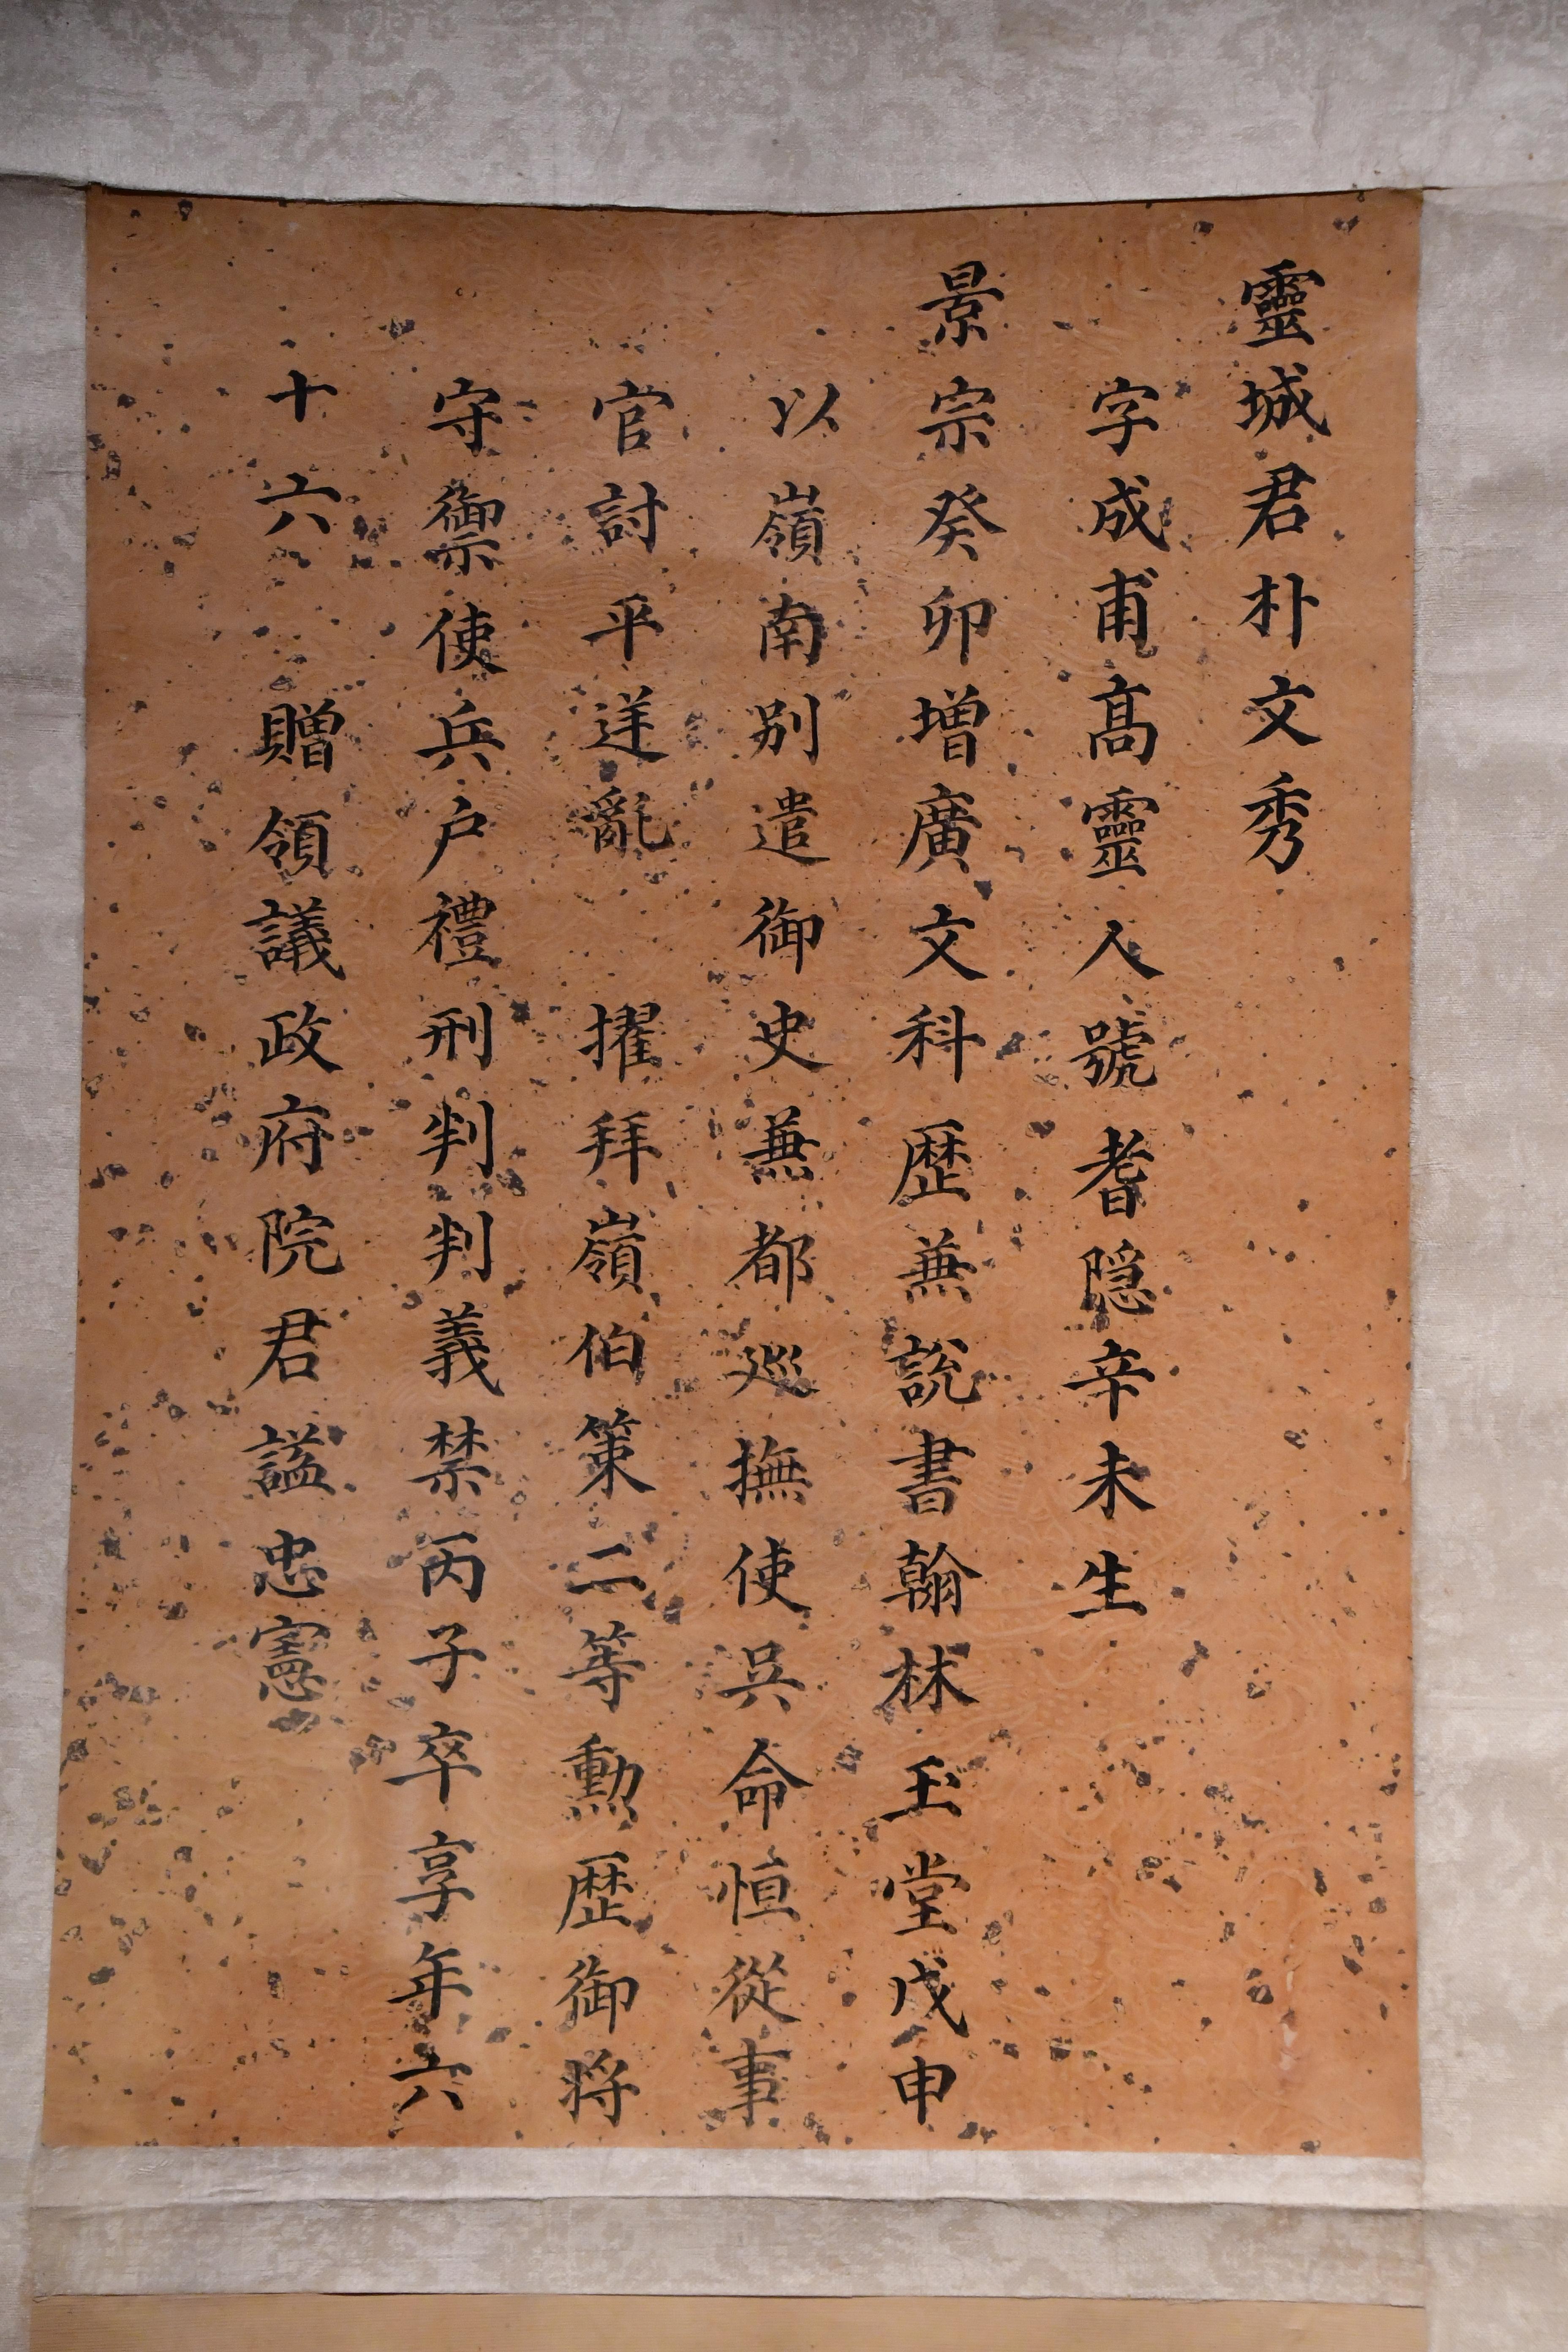 靈城君朴文秀
字成甫高靈人號耆隠辛未生
景宗癸卯增廣文科歷兼說書翰林玉堂戊申
以嶺南別遣御史兼都廵撫使吳命恒從事
官討平逆亂 擢拜嶺伯策二等勳歷御將
守禦使兵戶禮刑判判義禁丙子卒享年六
十六 贈領議政府院君謚忠憲